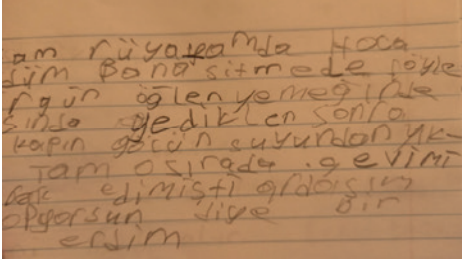 am rüyamda Hoca
düm Bana sitmede söyle
rgün öğlen yemeğinde
sinda yedikten sonra
kapın gölün suyundan yık-
Tam o sırada . gevimi
edimişti ardaşım
apıyorsun diye Bir
erdim